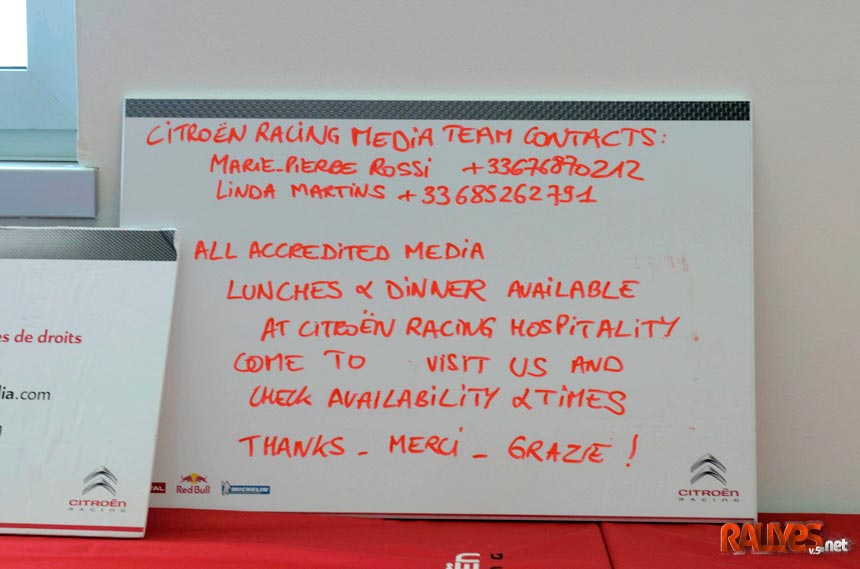 CITROËN RACING MEDIA TEAM CONTACTS:
MARIE-PIERRE ROSSI +33676870212
LINDA MARTINS +33685262791
ALL ACCREDITED MEDIA
LUNCHES & DINNER AVAILABLE
AT CITROËN RACING HOSPITALITY
COME TO VISIT US AND
CHECK AVAILABILITY & TIMES
THANKS - MERCI - GRAZIE !
es de droits
ia.com
CITROËN
RACING
TAL
Red Bull
MICHELIN
CITROËN
RACING
RALLYES
v.5.net